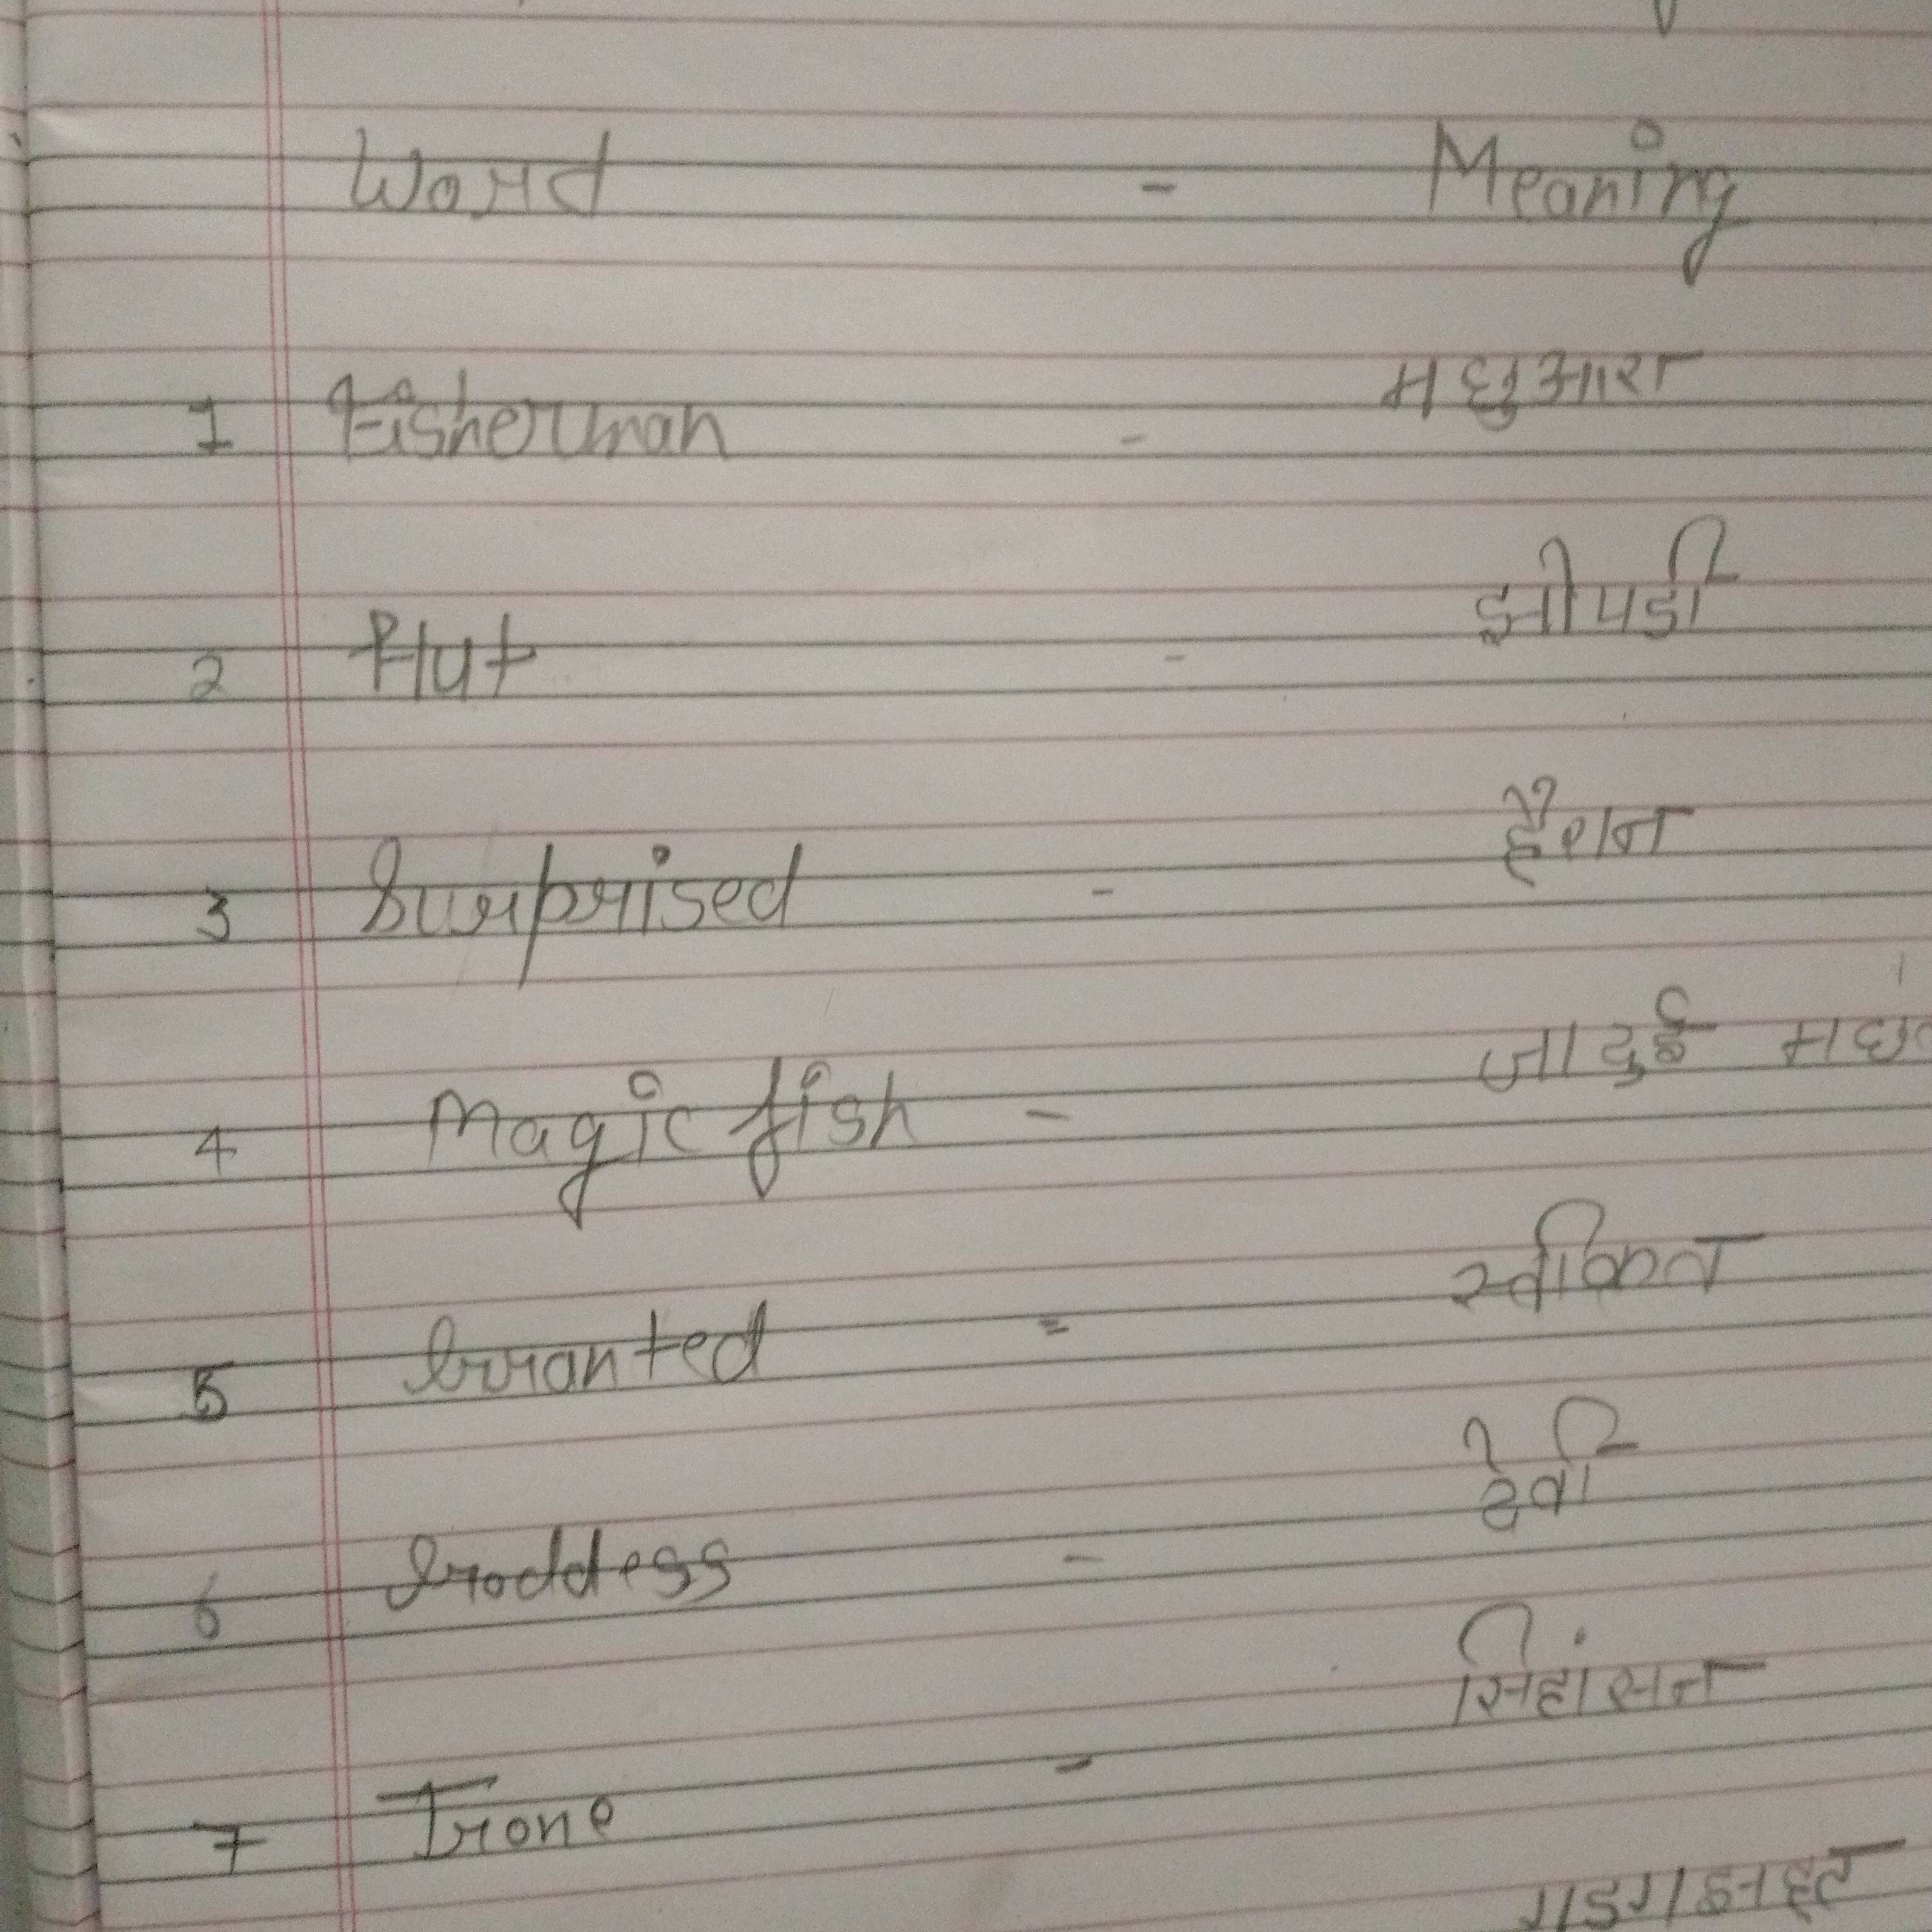 Word - Meaning
1 Fisherman - मछुआरा
2 Hut - झोपड़ी
3 Surprised - हैरान
4 Magic fish - जादुई मछ
5 Granted = स्वीकित
6 Goddess - देवी
7 Trone - सिहांसन
गडगडाहट